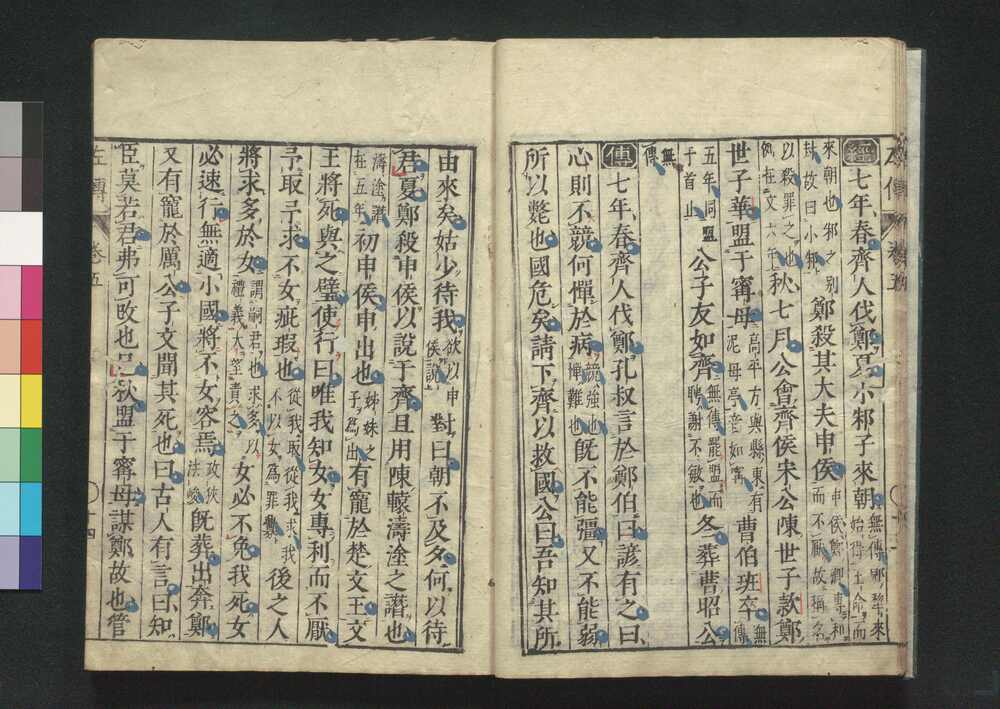 經七年春齊人伐鄭夏小邾子來朝無傳郳犂來始得王命而
來朝也邾之別封故曰小邾鄭殺其大夫申侯申侯鄭卿專利而不厭故稱名
以殺罪之也例在文六年秋七月公會齊侯宋公陳世子款鄭
世子華盟于甯母高平方與縣東有泥母亭音如甯曹伯班卒無傳
五年同盟于首止公子友如齊無傳罷盟而聘謝不敏也冬葬曹昭公
無傳
傳七年春齊人伐鄭孔叔言於鄭伯曰諺有之曰
心則不競何憚於病競強也憚難也既不能彊又不能弱
所以斃也國危矣請下齊以救國公曰吾知其所
由來矣姑少待我欲以申侯說對曰朝不及夕何以待
君夏鄭殺申侯以說于齊且用陳轅濤塗之譖也
濤塗譖在五年初申侯申出也姊妹之子爲出有寵於楚文王文
王將死與之璧使行曰唯我知女女專利而不厭
予取予求不女疵瑕也從我取從我求我不以女為罪釁後之人
將求多於女謂嗣君也求多以禮義大望責之女必不免我死女
必速行無適小國將不女容焉政狹法峻既葬出奔鄭
又有寵於厲公子文聞其死也曰古人有言曰知
臣莫若君弗可改也已秋盟于甯母謀鄭故也管
左傳 卷五 十四